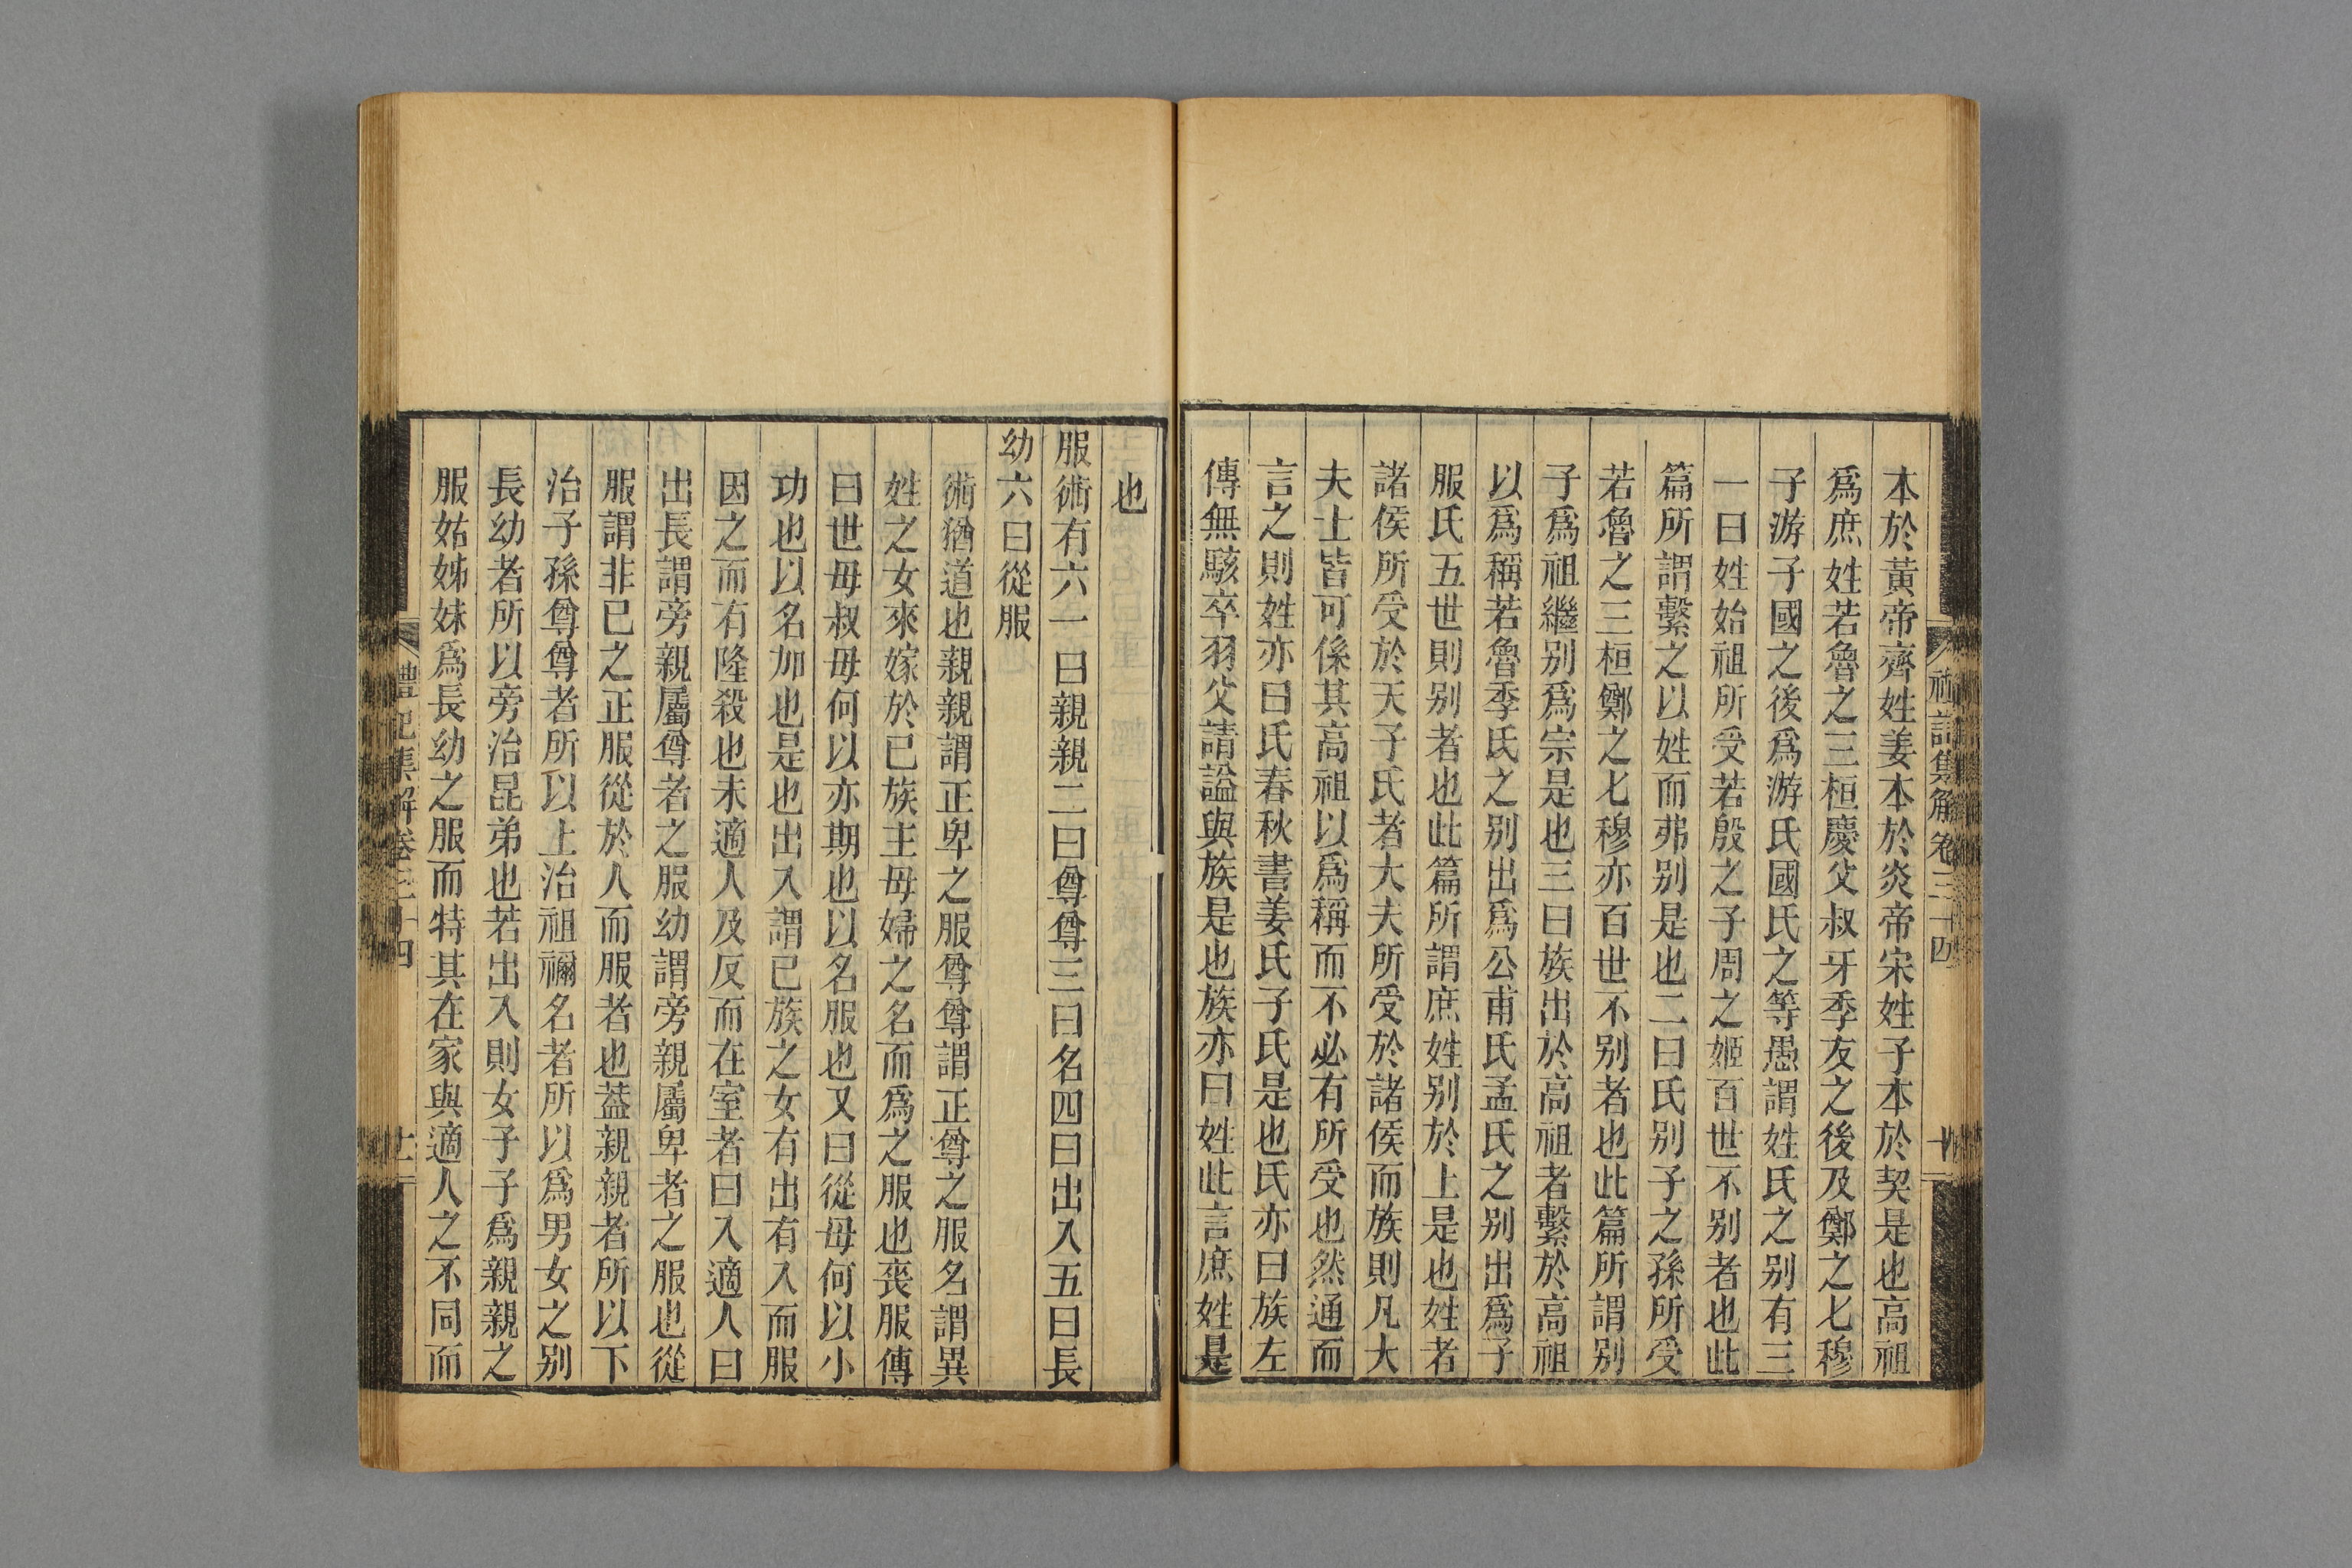 禮記集解卷三十四
十
本於黃帝齊姓姜本於炎帝宋姓子本於契是也高祖
爲庶姓若魯之三桓慶父叔牙季友之後及鄭之七穆
子游子國之後爲游氏國氏之等愚謂姓氏之別有三
一曰姓始祖所受若殷之子周之姬百世不別者也此
篇所謂繫之以姓而弗別是也二曰氏別子之孫所受
若魯之三桓鄭之七穆亦百世不別者也此篇所謂別
子爲祖繼別爲宗是也三曰族出於高祖者繫於高祖
以爲稱若魯季氏之別出爲公甫氏孟氏之別出爲子
服氏五世則別者也此篇所謂庶姓別於上是也姓者
諸侯所受於天子氏者大夫所受於諸侯而族則凡大
夫士皆可係其高祖以爲稱而不必有所受也然通而
言之則姓亦曰氏春秋書姜氏子氏是也氏亦曰族左
傳無駭卒羽父請諡與族是也族亦曰姓此言庶姓是
也
服術有六一曰親親二曰尊尊三曰名四曰出入五曰長
幼六曰從服
術猶道也親親謂正卑之服尊尊謂正尊之服名謂異
姓之女來嫁於己族主母婦之名而爲之服也喪服傳
曰世母叔母何以亦期也以名服也又曰從母何以小
功也以名加也是也出入謂己族之女有出有入而服
因之而有隆殺也未適人及反而在室者曰入適人曰
出長謂旁親屬尊者之服幼謂旁親屬卑者之服也從
服謂非己之正服從於人而服者也蓋親親者所以下
治子孫尊尊者所以上治祖禰名者所以爲男女之別
長幼者所以旁治昆弟也若出入則女子子爲親親之
服姑姊妹爲長幼之服而特其在家與適人之不同而
禮記集解卷三十四